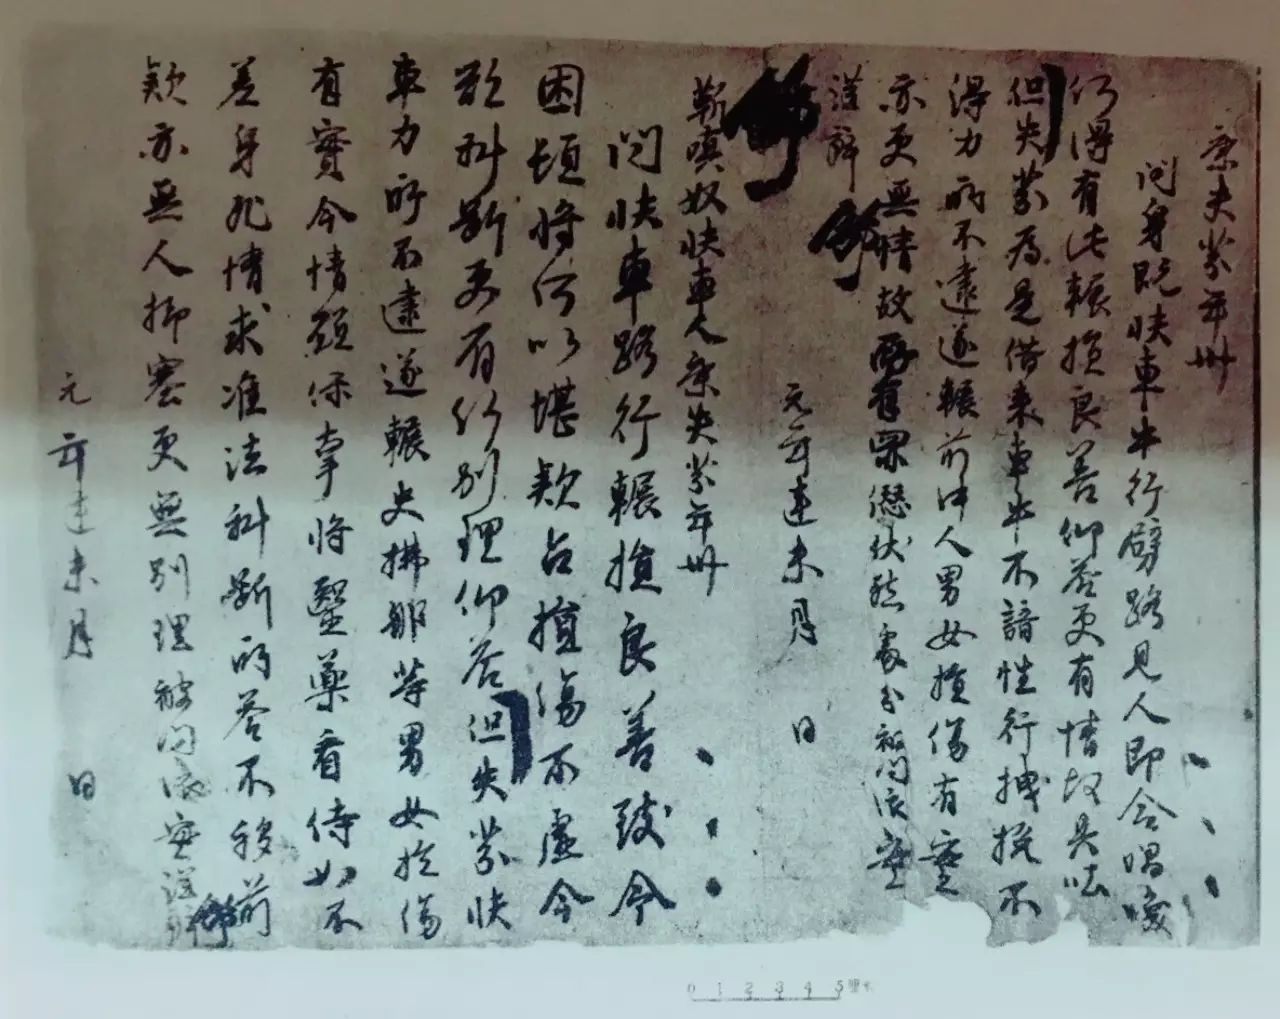 康失芬年卅
問身既快車牛行劈路見人即合唱喚
何得有此輾損良善仰答更有情故具吐
但失芬為是借來車牛不諳性行拽挽不
得力所不逮遂輾前件人男女損傷有實
亦更無情故所有罪愆伏聽處分被問依實
謹辯 錚
元年建未月 日
錚
靳嗔奴快車人康失芬年卅
問快車路行輾損良善致令
困頓將何以堪款占損傷不虛今
欲科斷更有何別理仰答但失芬快
車力所不逮遂輾史拂郍等男女損傷
有實今情願保辜將醫藥看待如不
差身死情求准法科斷所答不移前
款亦無人抑塞更無別理被問依實謹
辯 錚
元年建未月 日
0 1 2 3 4 5厘米